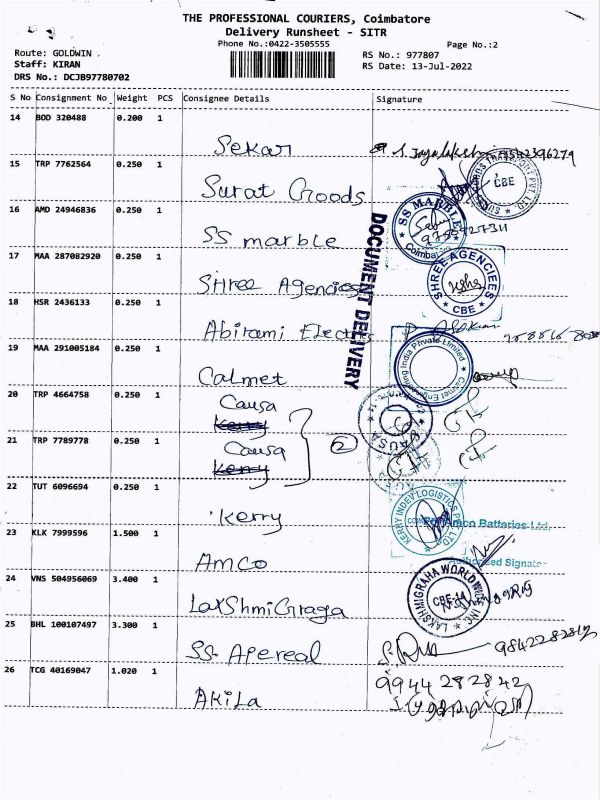 THE PROFESSIONAL COURIERS, Coimbatore
Delivery Runsheet - SITR
Phone No.:0422-3505555
Page No.:2
Route: GOLDWIN
RS No.: 977807
Staff: KIRAN
RS Date: 13-Jul-2022
DRS No.: DCJB97780702
S No Consignment No Weight PCS Consignee Details Signature
14 BOD 320488 0.200 1 Sekar
15 TRP 7762564 0.250 1 Surat Goods CBE
16 AMD 24946836 0.250 1 SS marble SS MARBLE Coimbatore
17 MAA 287082920 0.250 1 SHree Agencies SHREE AGENCIEES CBE
18 HSR 2436133 0.250 1 Abirami Electric
DOCUMENT DELIVERY
19 MAA 291005184 0.250 1 Calmet Calmet Engineering India Private Limited
20 TRP 4664758 0.250 1 Causa
Kerry
21 TRP 7789778 0.250 1 Causa
Kerry
2
CAUSA
22 TUT 6096694 0.250 1 Kerry KERRY INDEV LOGISTICS PVT LTD
For Amco Batteries Ltd.
23 KLK 7999596 1.500 1 AMCO
Authorised Signator
24 VNS 504956069 3.400 1 LaxShmiGraga LAKSHMIGRAHA WORLDWIDE INC CBE-14
25 BHL 100107497 3.300 1 SS Apereal 9842282812
26 TCG 40169047 1.020 1 AkiLa 9944282842